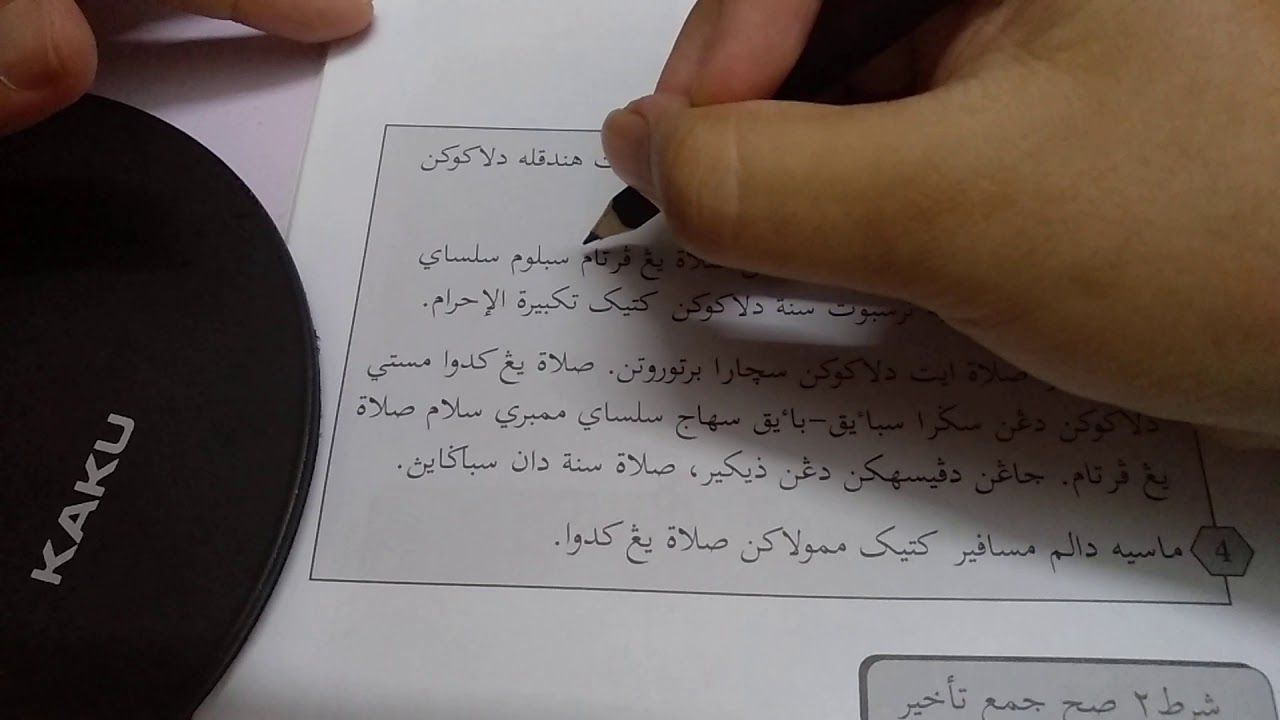 هندقله دلاکوکن
صلاة يڠ ڤرتام سبلوم سلساي
ترسبوت سنة دلاکوکن کتيک تکبيرة الإحرام.
صلاة ايت دلاکوکن سچارا برتوروتن. صلاة يڠ کدوا مستي
دلاکوکن دڠن سڬرا سباٴيق-باٴيق سهاج سلساي ممبري سلام صلاة
يڠ ڤرتام. جاڠن دڤيسهکن دڠن ذيکير، صلاة سنة دان سباݢاين.
4 ماسيه دالم مسافير کتيک ممولاکن صلاة يڠ کدوا.
شرط ٢ صح جمع تأخير
KAKU